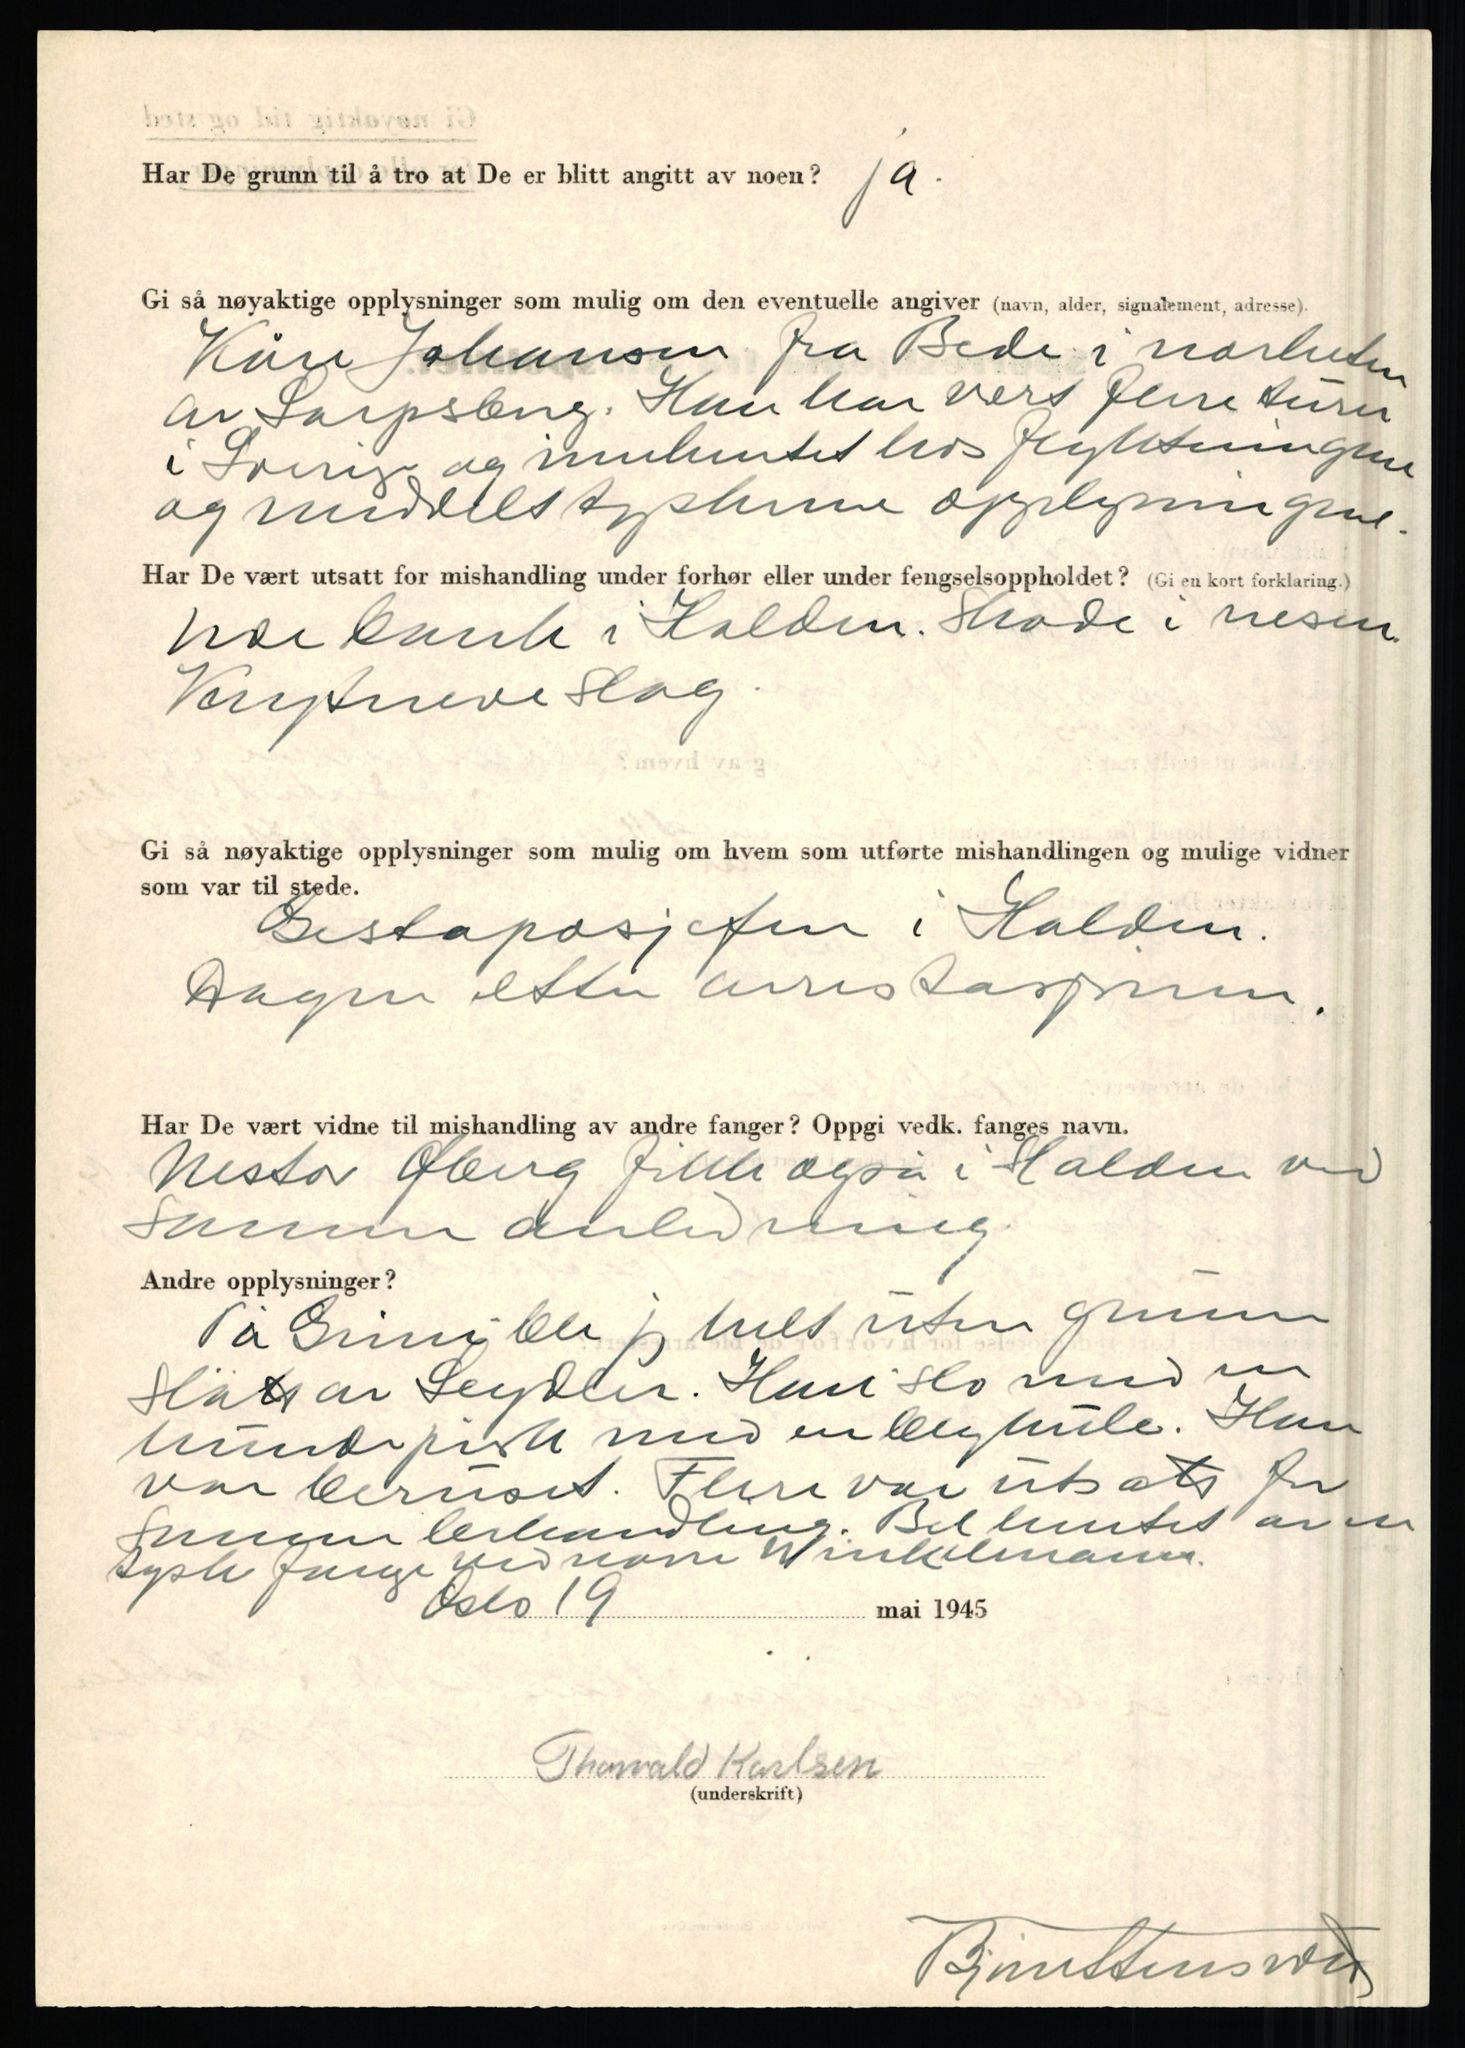 Har De grunn til å tro at De er blitt angitt av noen? ja.
Gi så nøyaktige opplysninger som mulig om den eventuelle angiver (navn, alder, signalement, adresse).
Kåre Johansen fra Bede i nærheten
av Sarpsborg. Han har vert flere turer
i Sverige og innhentet hos flyktningene
og meddelt tyskerne opplysningene.
Har De vært utsatt for mishandling under forhør eller under fengselsoppholdet? (Gi en kort forklaring.)
noe bank i Halden. Skade i nesen.
Knyttneveslag.
Gi så nøyaktige opplysninger som mulig om hvem som utførte mishandlingen og mulige vidner
som var til stede.
Gestaposjefen i Halden.
Dagen etter arrestasjonen.
Har De vært vidne til mishandling av andre fanger? Oppgi vedk. fanges navn.
Nestor Øberg fikk også i Halden ved
samme anledning.
Andre opplysninger?
På Grini ble jeg helt uten grunn
slått av Seydler. Han slo med en
hundepisk med en blykule. Han
var beruset. Flere var utsatt for
samme behandling. Ble hentet av en
tysk fange ved navn Winkelmann.
Oslo 19 mai 1945
Thorvald Karlsen
(underskrift)